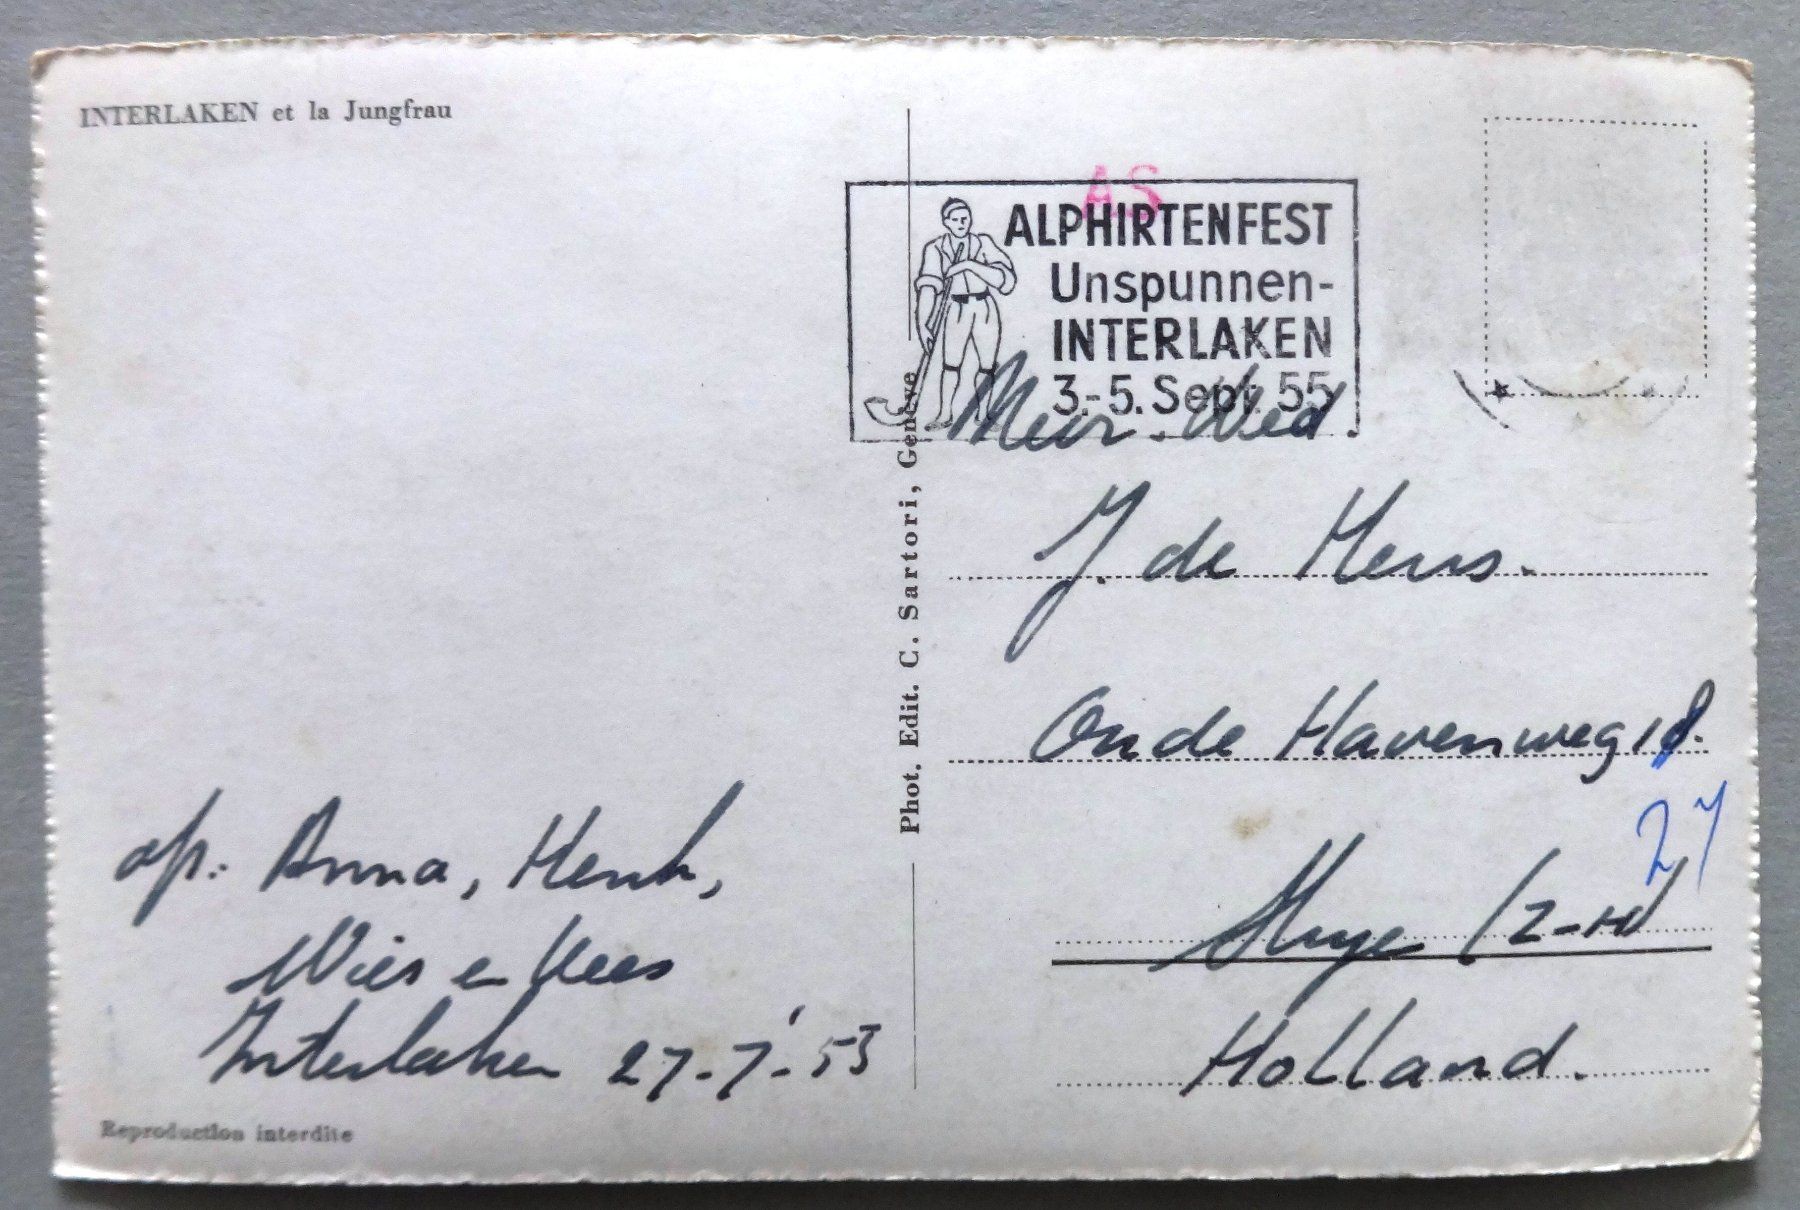 INTERLAKEN et la Jungfrau
AS
ALPHIRTENFEST
Unspunnen-
INTERLAKEN
3.-5. Sept. 55
Phot. Edit. C. Sartori, Genève
Mevr. Wed.
J. de Heus.
Oude Havenweg 18.
27
Holland.
afz: Anna, Henk,
Wies en Kees
Interlaken 27-7-'53
Reproduction interdite